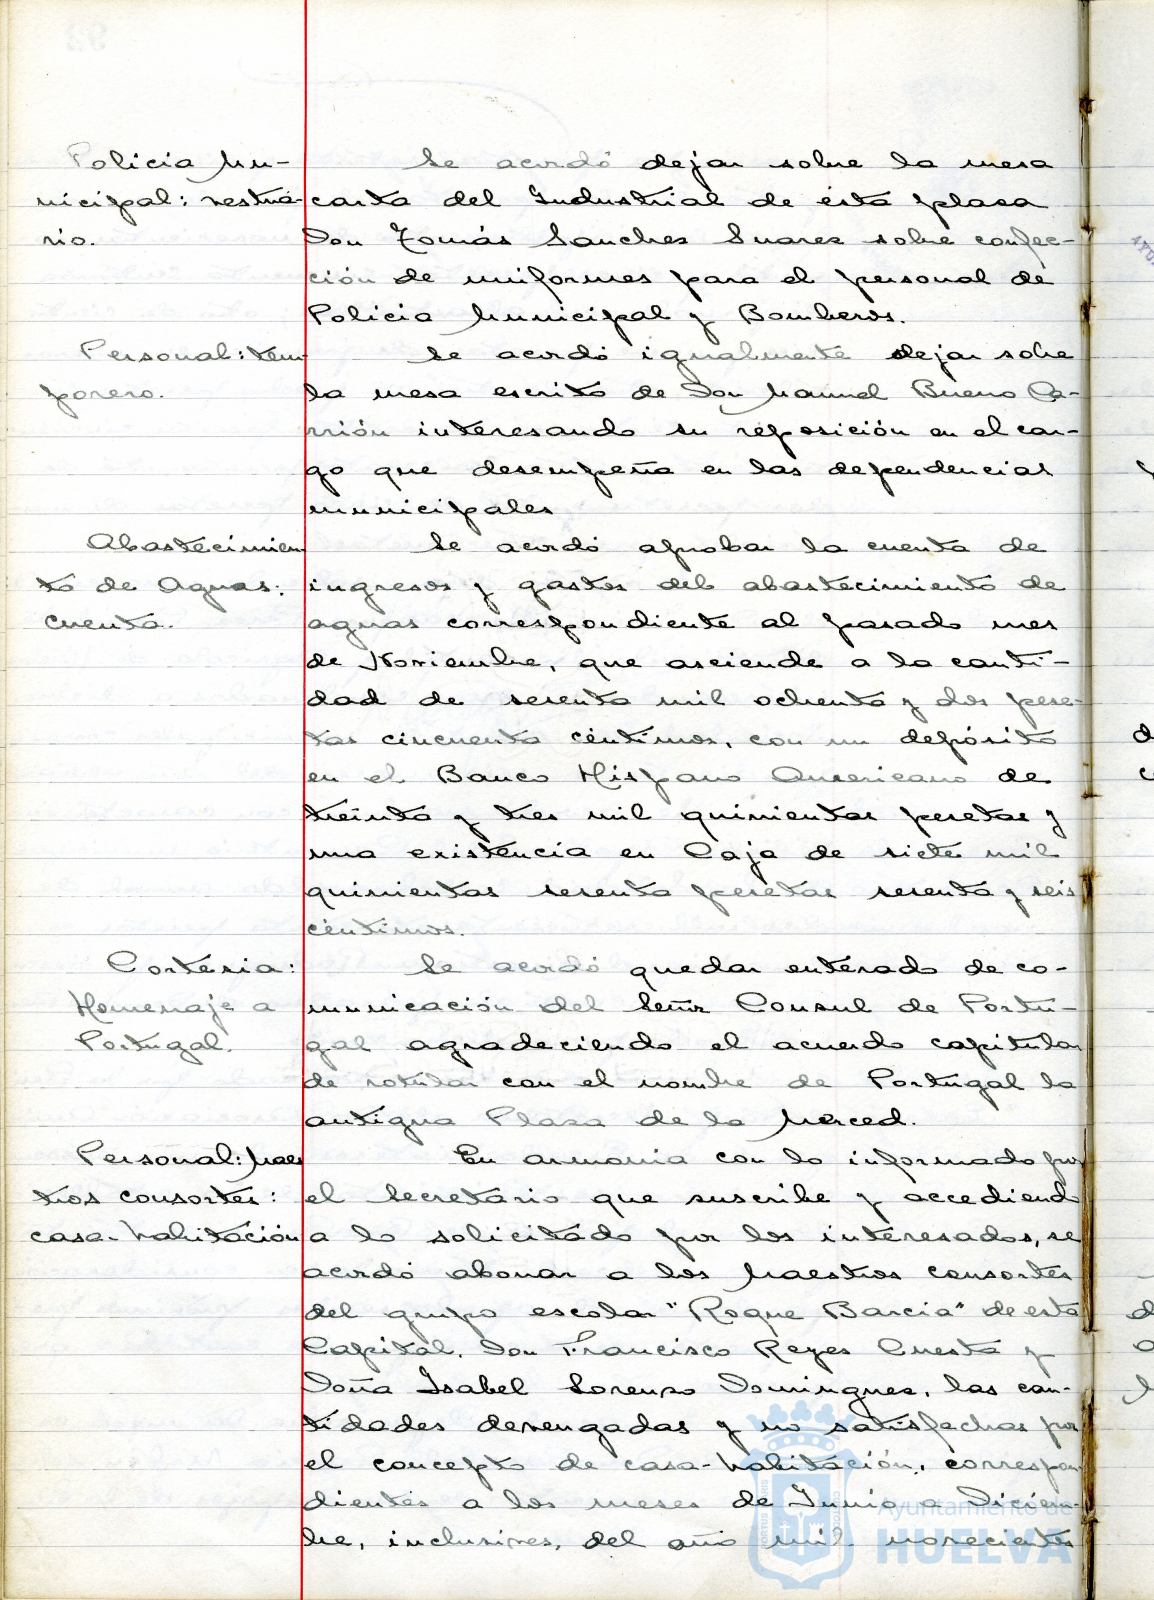 Policia Mu-
nicipal: vestua-
rio.
Se acordó dejar sobre la mesa
carta del Industrial de ésta plasa
Don Tomás Sanches Suarez sobre confec-
ción de uniformes para el personal de
Policia Municipal y Bomberos.
Personal: tem
porero.
Se acordó igualmente dejar sobre
la mesa escrito de Don Manuel Bueno Ca-
rrión interesando su reposición en el car-
go que desempeña en las dependencias
municipales
Abastecimien
to de Aguas:
cuenta.
Se acordó aprobar la cuenta de
ingresos y gastos del abastecimiento de
aguas correspondiente al pasado mes
de Noviembre, que asciende a la canti-
dad de sesenta mil ochenta y dos pese-
tas cincuenta céntimos, con un depósito
en el Banco Hispano Americano de
treinta y tres mil quinientas pesetas y
una existencia en Caja de siete mil
quinientas sesenta pesetas sesenta y seis
céntimos.
Cortesia:
Homenaje a
Portugal.
Se acordó quedar enterado de co-
municación del Señor Consul de Portu-
gal agradeciendo el acuerdo capitular
de rotular con el nombre de Portugal la
antigua Plasa de la Merced.
Personal: Maes
tros consortes:
casa-habitación
En armonia con lo informado por
el Secretario que suscribe y accediendo
a lo solicitado por los interesados, se
acordó abonar a los Maestros consortes
del grupo escolar "Roque Barcia" de esta
Capital, Don Francisco Reyes Cuesta y
Doña Isabel Lorenzo Domingues, las can-
tidades devengadas y no satisfechas por
el concepto de casa-habitación, correspon-
dientes a los meses de Junio a Diciem-
bre, inclusives, del año mil novecientos
Ayuntamiento de
HUELVA